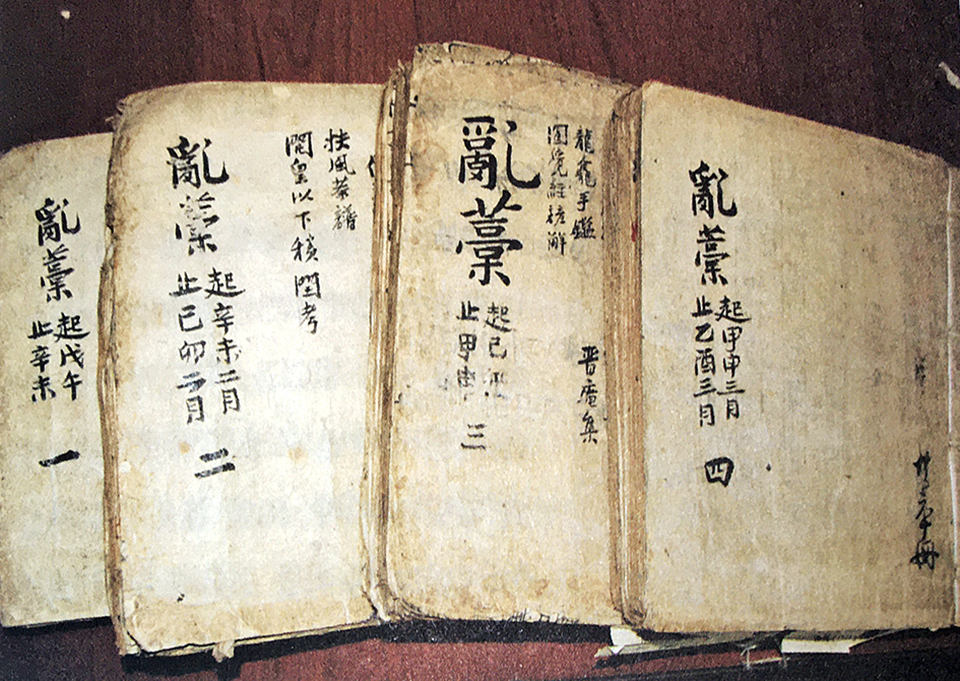 亂藁
起戊午
止辛未
一
扶風茶譜
開皇以下積閏考
亂藁
起辛未二月
止己卯二月
二
龍龕手鑑
圓覺經諺解
晋庵集
亂藁
起己卯
止甲申
三
亂藁
起甲申三月
止乙酉三月
四